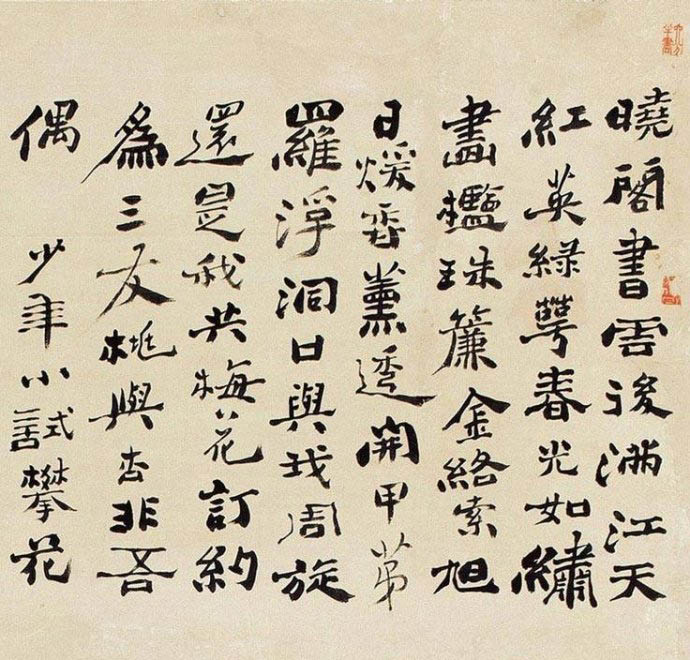 曉閣書雲後滿江天
紅英綠萼春光如繡
畫檻珠簾金絡索旭
日煖香薰透開甲第
羅浮洞口與我周旋
還是我共梅花訂約
爲三友桃與杏非吾
偶 少年小試攀花